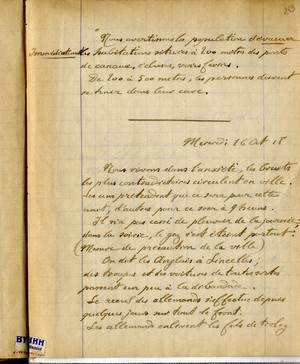 "Nous avertissons la population d'évacuer
Immédiatement les habitations situées à 200 mètres des ponts
de canaux, écluses, voies ferrées.
De 200 à 500 mètres, les personnes doivent
se tenir dans leur cave.
Mercredi 16 Oct 18
Nous vivons dans l'anxiété, les bruits
les plus contradictoires circulent en ville.
Les uns prétendent que ce sera pour cette
nuit, d'autres pour ce soir à 9 heures.
Il n'a pas cessé de pleuvoir de la journée;
dans la soirée, le gaz s'est éteint partout.
(Mesure de précaution de la ville)
On dit les Anglais à Linselles;
des troupes et des voitures de toutes sortes
passent un peu à la débandade.
Le recul des allemands s'effectue depuis
quelques jours sur tout le front.
Les allemands enlèvent les fils de